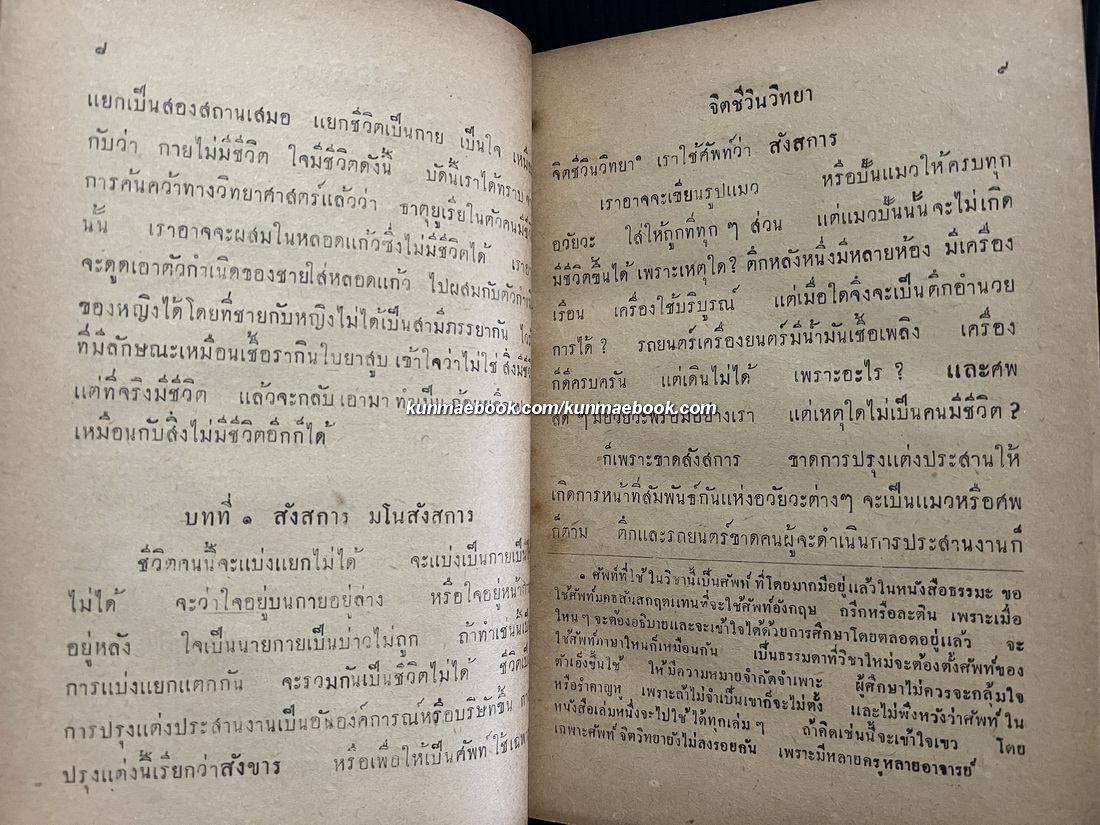 ๘
แยกเป็นสองสถานเสมอ แยกชีวิตเป็นกาย เป็นใจ
กับว่า กายไม่มีชีวิต ใจมีชีวิตดังนี้ บัดนี้เราได้ทราบ
การค้นคว้าทางวิทยาศาสตร์แล้วว่า ธาตุยูเรียในตัวคน
นั้น เราอาจจะผสมในหลอดแก้วซึ่งไม่มีชีวิตได้
จะดูดเอาตัวกำเนิดของชายใส่หลอดแก้ว ไปผสมกับตัว
ของหญิงได้โดยที่ชายกับหญิงไม่ได้เป็นสามีภรรยากัน
ที่มีลักษณะเหมือนเชื้อรากินใบยาสูบ เข้าใจว่าไม่ใช่
แต่ที่จริงมีชีวิต แล้วจะกลับเอามา
เหมือนกับสิ่งไม่มีชีวิตอีกก็ได้
บทที่ ๑ สังสการ มโนสังสการ
ชีวิตคนนี้จะแบ่งแยกไม่ได้ จะแบ่งเป็นกายเป็น
ไม่ได้ จะว่าใจอยู่บนกายอยู่ล่าง หรือใจอยู่หน้า
อยู่หลัง ใจเป็นนายกายเป็นบ่าวไม่ถูก ถ้าทำเช่นนั้น
การแบ่งแยกแตกกัน จะรวมกันเป็นชีวิตไม่ได้
การปรุงแต่งประสานงานเป็นอันองค์การณ์หรือบริษัทขึ้น
ปรุงแต่งนี้เรียกว่าสังขาร หรือเพื่อให้เป็นศัพท์ใช้
๙
จิตชีวินวิทยา
จิตชีวินวิทยา๑ เราใช้ศัพท์ว่า สังสการ
เราอาจจะเขียนรูปแมว หรือปั้นแมวให้ครบทุก
อวัยวะ ใส่ให้ถูกที่ทุก ๆ ส่วน แต่แมวปั้นนั้นจะไม่เกิด
มีชีวิตขึ้นได้ เพราะเหตุใด? ตึกหลังหนึ่งมีหลายห้อง มีเครื่อง
เรือน เครื่องใช้บริบูรณ์ แต่เมื่อใดจึ่งจะเป็นตึกอำนวย
การได้ ? รถยนตร์เครื่องยนตร์มีน้ำมันเชื้อเพลิง เครื่อง
ก็ดีครบครัน แต่เดินไม่ได้ เพราะอะไร ? และศพ
สด ๆ มีอวัยวะพร้อมอย่างเรา แต่เหตุใดไม่เป็นคนมีชีวิต ?
kunmaebook.com/kunmaebook.com
ก็เพราะขาดสังสการ ขาดการปรุงแต่งประสานให้
เกิดการหน้าที่สัมพันธ์กันแห่งอวัยวะต่างๆ จะเป็นแมวหรือศพ
ก็ตาม ตึกและรถยนตร์ขาดคนผู้จะดำเนินการประสานงานก็
๑ ศัพท์ที่ใช้ในวิชานี้เป็นศัพท์ ที่โดยมากมีอยู่แล้วในหนังสือธรรมะ ขอ
ใช้ศัพท์มคธสันสกฤตแทนที่จะใช้ศัพท์อังกฤษ กรีกหรือละติน เพราะเมื่อ
ไหนๆ จะต้องอธิบายและจะเข้าใจได้ด้วยการศึกษาโดยตลอดอยู่แล้ว จะ
ใช้ศัพท์ภาษาไหนก็เหมือนกัน เป็นธรรมดาที่วิชาใหม่จะต้องตั้งศัพท์ของ
ตัวเองขึ้นใช้ ให้มีความหมายจำกัดจำเพาะ ผู้ศึกษาไม่ควรจะกลุ้มใจ
หรือรำคาญหู เพราะถ้าไม่จำเป็นเขาก็จะไม่ตั้ง และไม่พึงหวังว่าศัพท์ใน
หนังสือเล่มหนึ่งจะไปใช้ได้ทุกเล่มๆ ถ้าคิดเช่นนี้จะเข้าใจเขว โดย
เฉพาะศัพท์ จิตวิทยายังไม่ลงรอยกัน เพราะมีหลายครูหลายอาจารย์